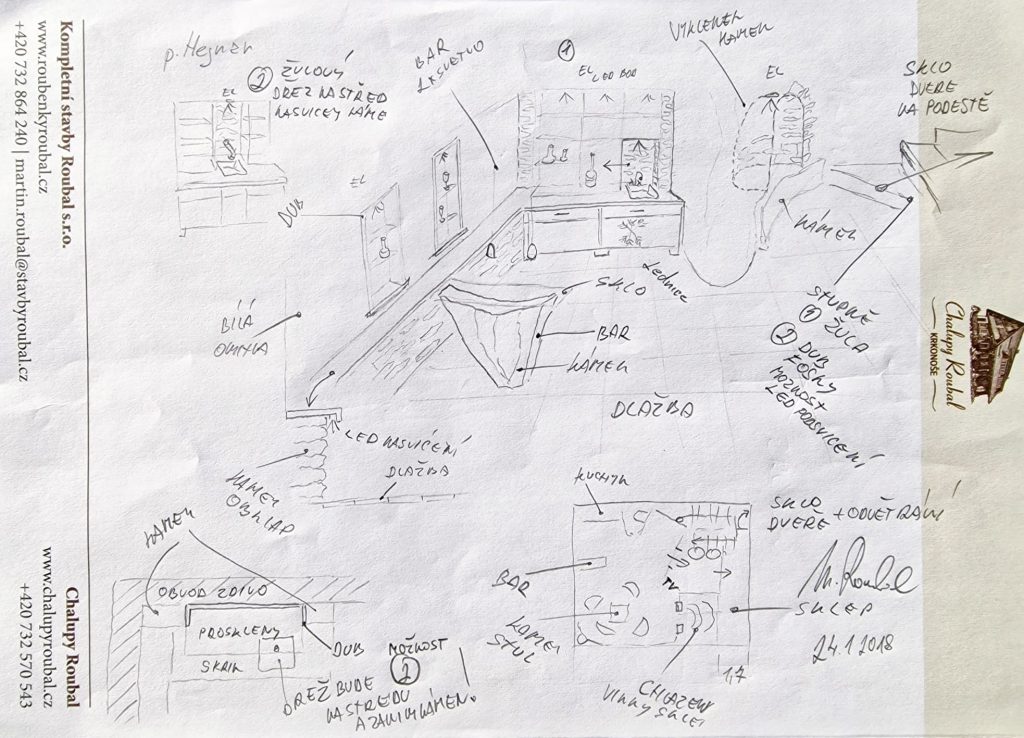 Kompletní stavby Roubal s.r.o.
www.roubenkyroubal.cz
+420 732 864 240 | martin.roubal@stavbyroubal.cz
Chalupy Roubal
www.chalupyroubal.cz
+420 732 570 543
Chalupy Roubal
KRKONOŠE
p. Hegner
2 ŽULOVÝ
DŘEZ NASTŘED
EL
BAR
EL
1
EL LED BOD
VÝKLENEK
KAMEN
EL
SKLO
DVEŘE
NA PODESTĚ
DUB
BÍLÁ
OMÍTKA
Lednice
SKLO
BAR
KÁMEN
KÁMEN
STUPNĚ
1 ŽULA
2 DUB
FOŠNY
MOŽNOST
LED PODSVICENÍ
DLAŽBA
LED NASVÍCENÍ
DLAŽBA
KAMEN
OBKLAD
KAMEN
OBVOD ZDIVO
PROSKLENÝ
SKŘÍŇ
DUB
MOŽNOST
2
DŘEZ BUDE
NASTŘEDU
A ZA NÍM KÁMEN.
KUCHYŇ
BAR
KAMEN
STUL
TV
SKLO
DVEŘE + ODVĚTRÁNÍ
M. Roubal
SKLEP
24.1.2018
1,7
CHLAZENÝ